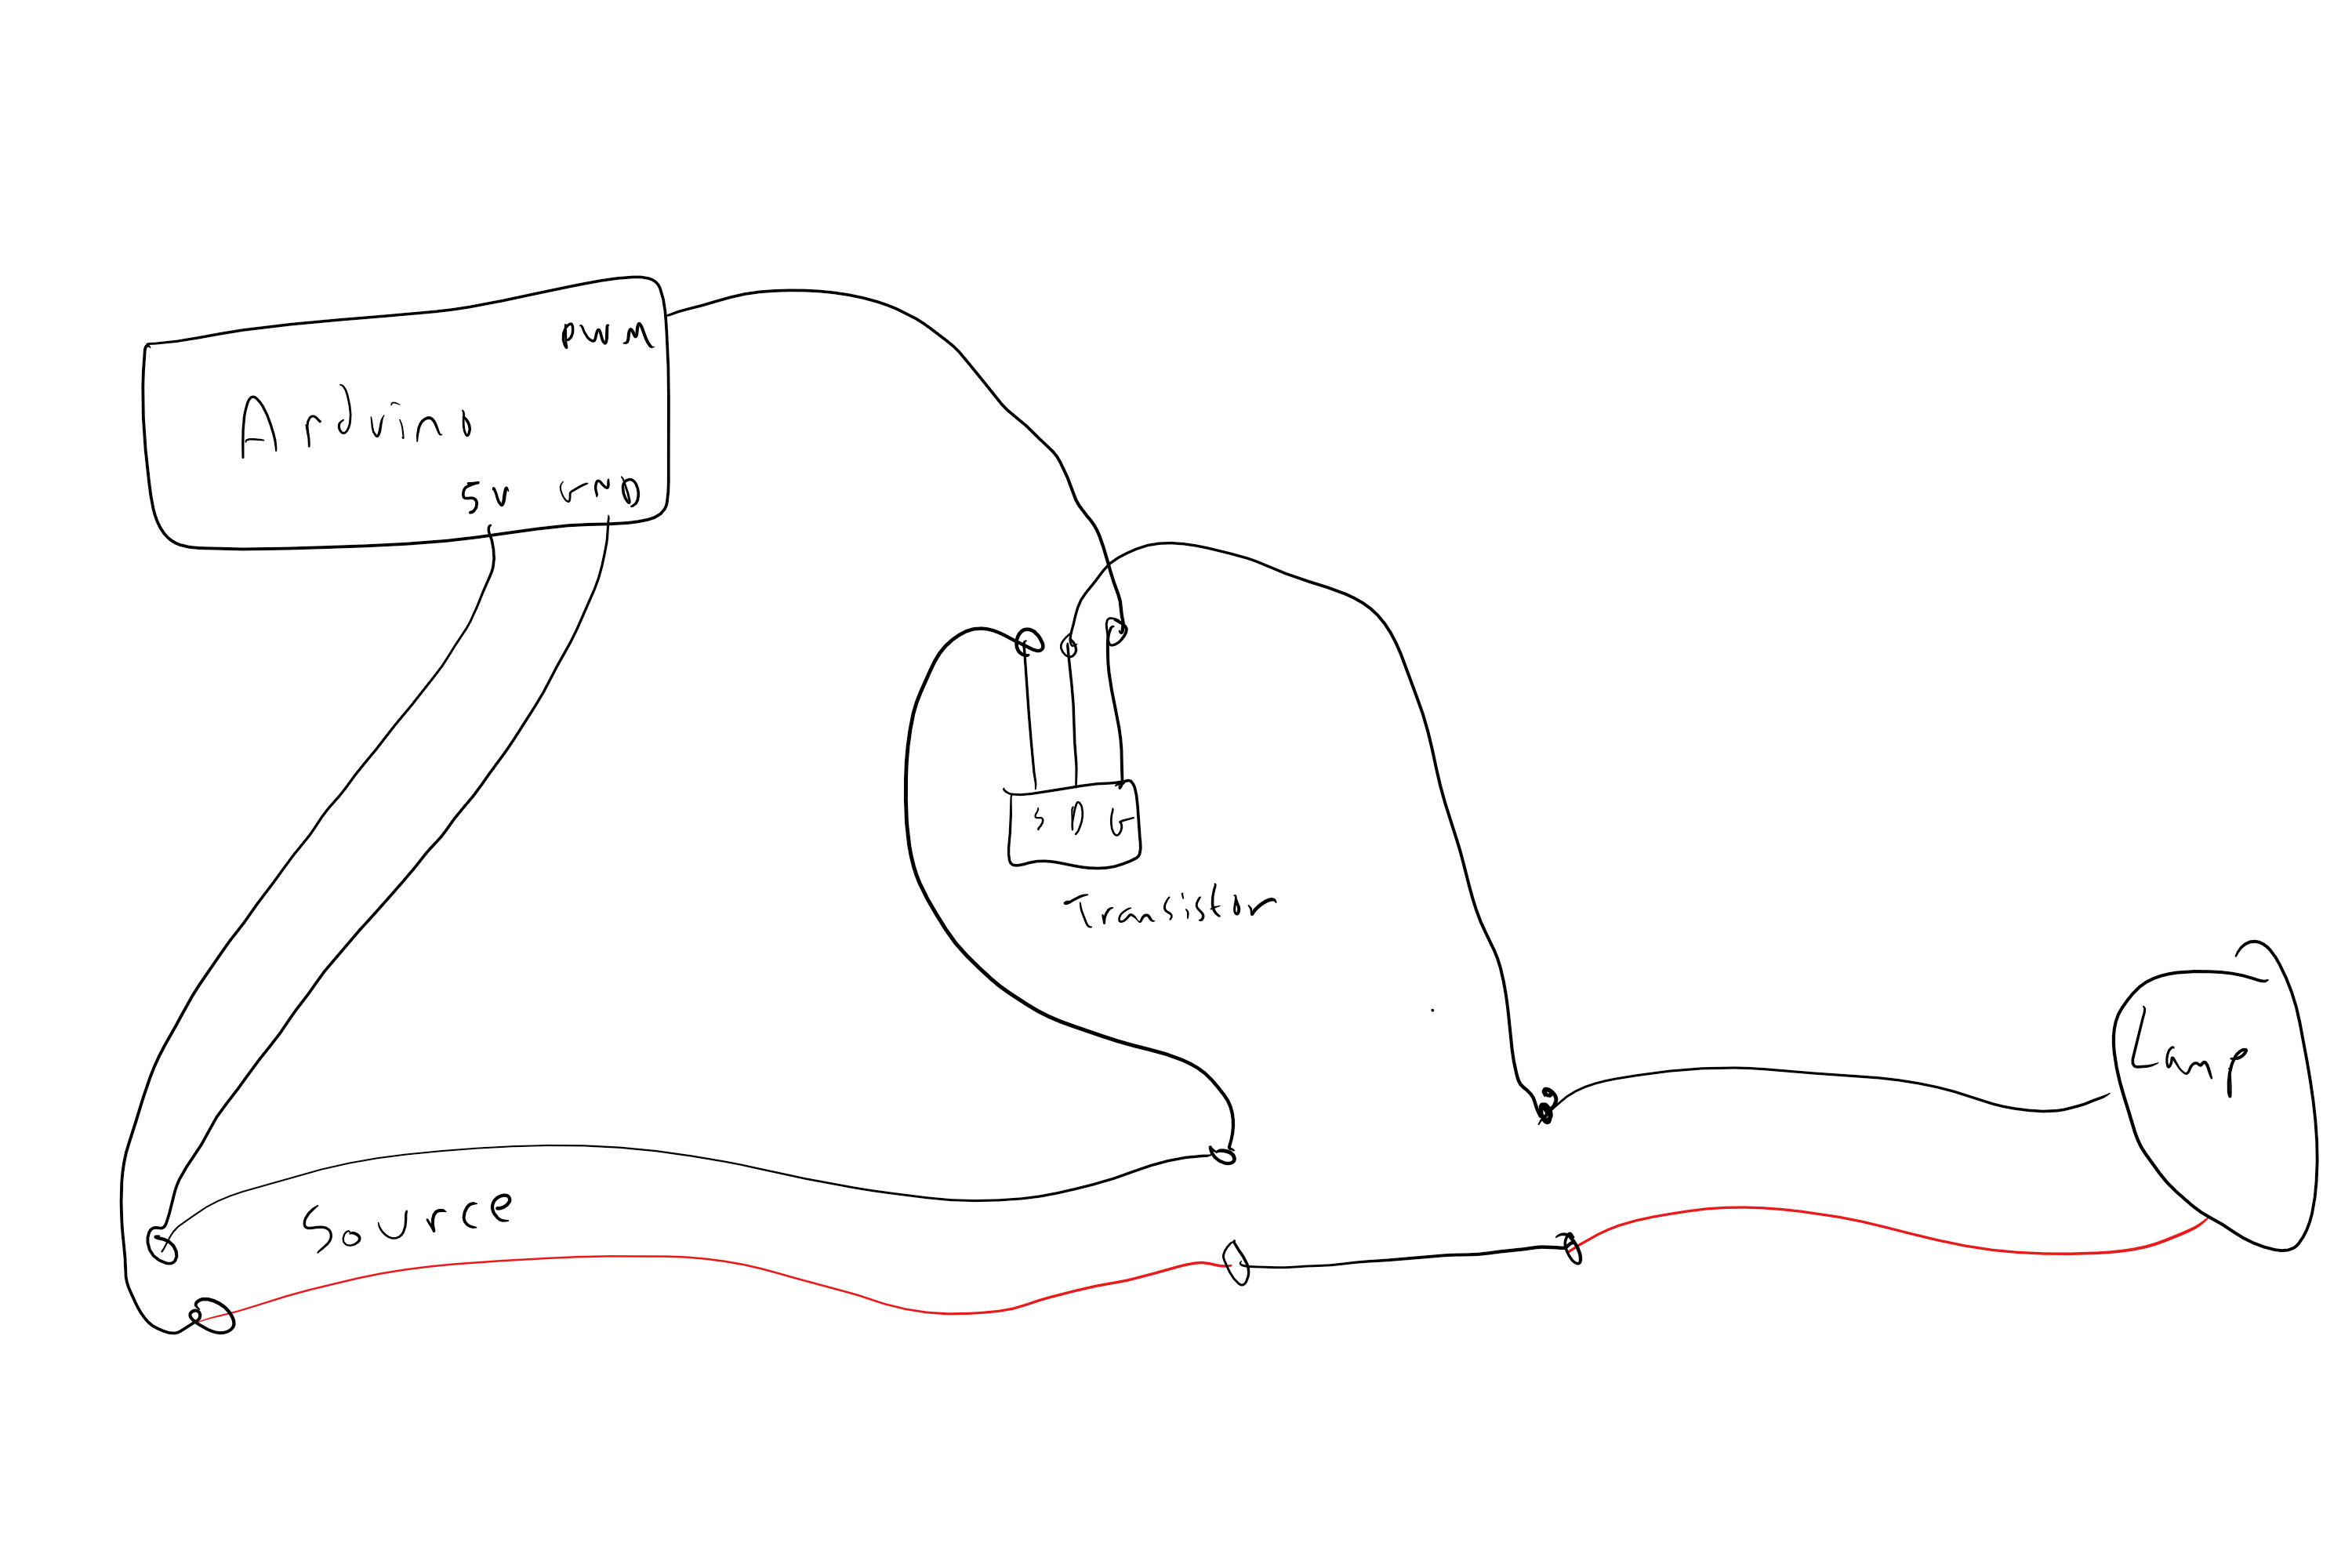 PWM
Arduino
5V GND
S D G
Transistor
Lamp
Source